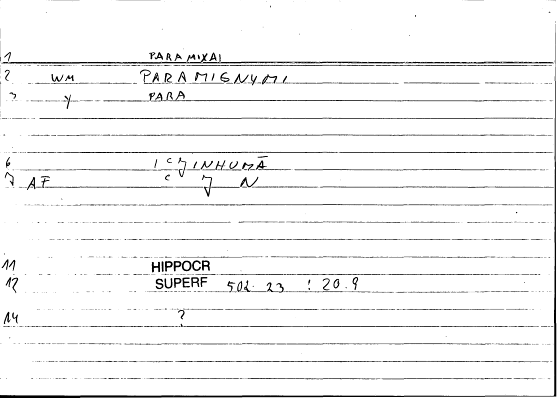 1 PARAMIXAI
2 WM PARAMIGNYMI
3 Y PARA
6 I C INHUMĀ
7 AF C N
11 HIPPOCR
12 SUPERF 502. 23 : 20.9
14 ?